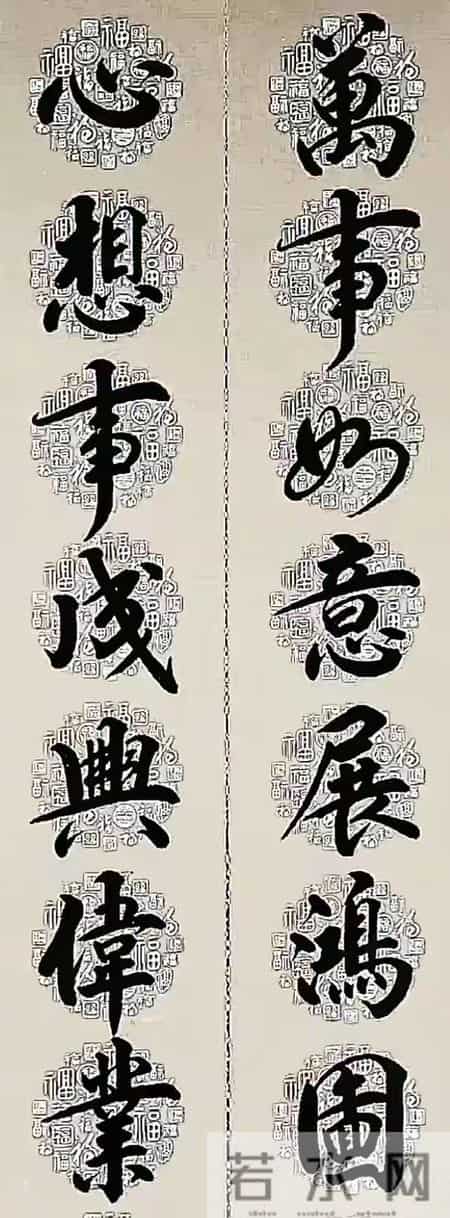 萬事如意展鴻圖
心想事成興偉業
若水网